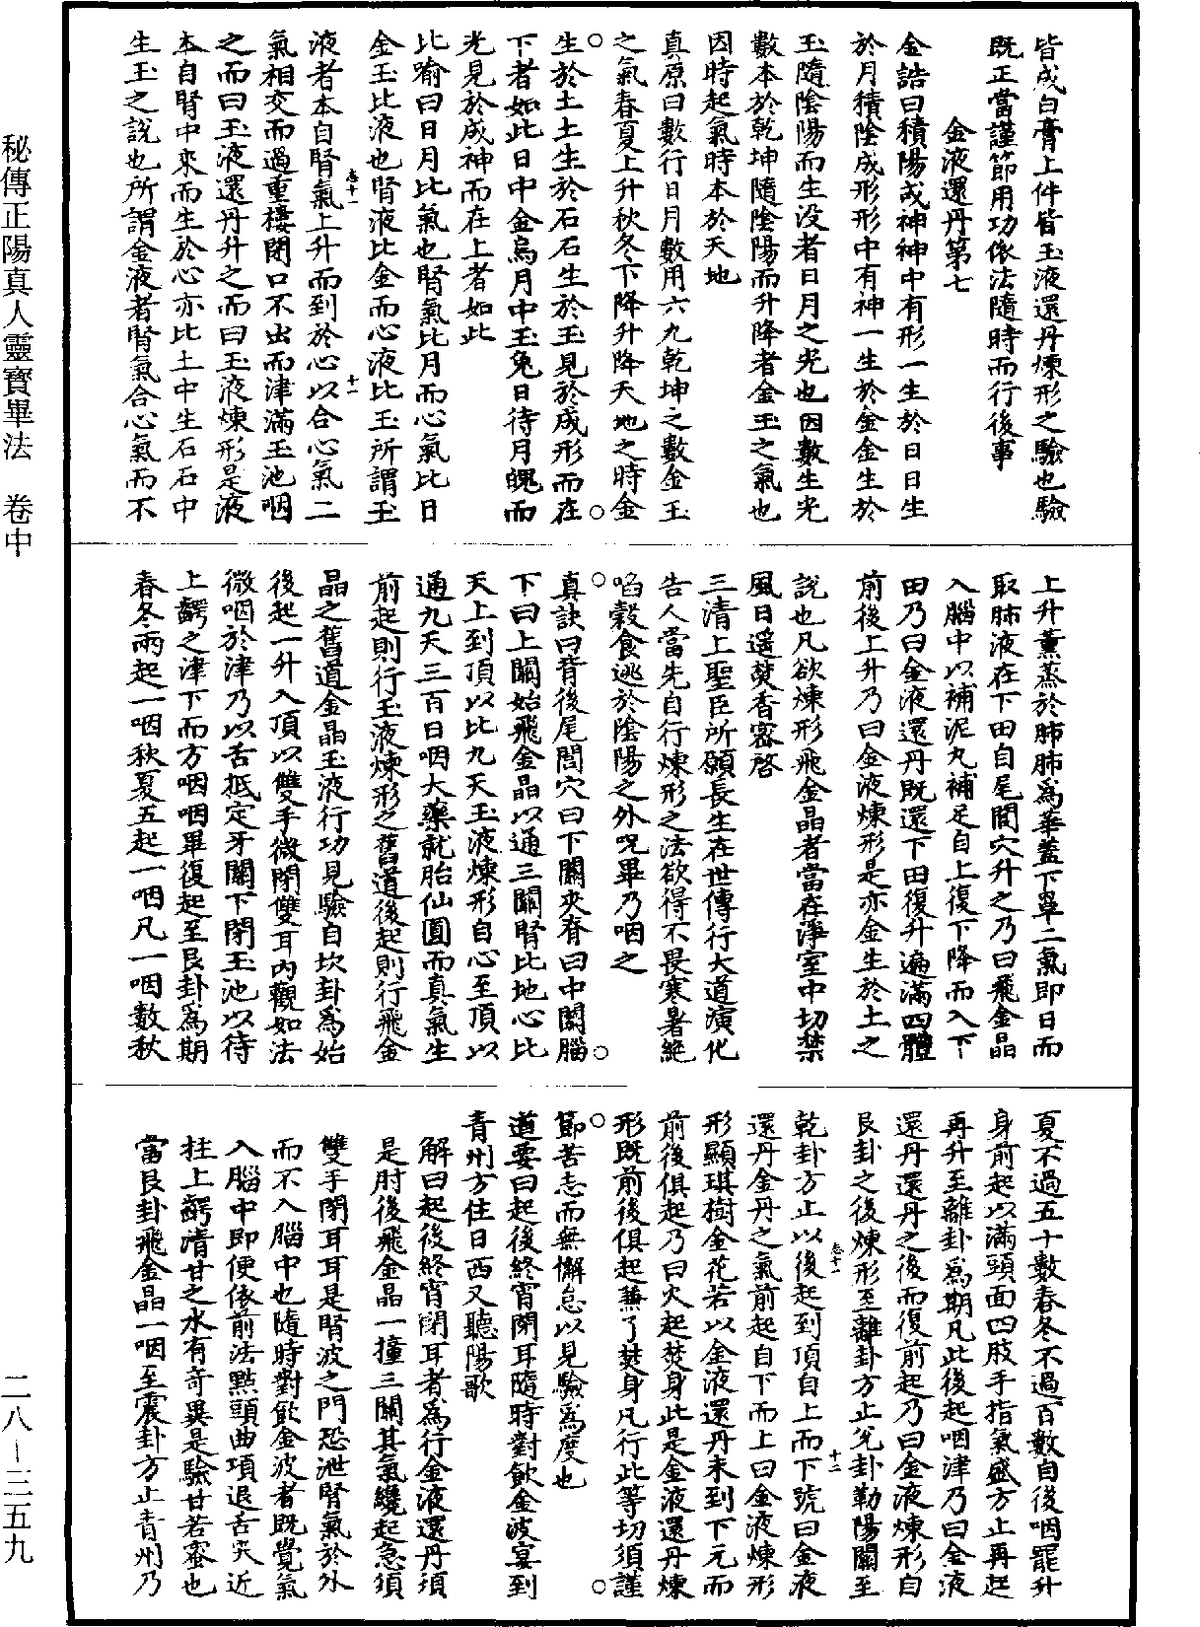 皆成白膏上件皆玉液還丹煉形之驗也驗
既正當謹節用功依法隨時而行後事
金液還丹第七
金誥曰積陽成神神中有形一生於日日生
於月積陰成形形中有神一生於金金生於
玉隨陰陽而生沒者日月之光也因數生光
數本於乾坤隨陰陽而升降者金玉之氣也
因時起氣時本於天地
真原曰數行日月數用六九乾坤之數金玉
之氣春夏上升秋冬下降升降天地之時金
生於土土生於石石生於玉見於成形而在
下者如此日中金烏月中玉兔日待月魄而
光見於成神而在上者如此
比喻曰日月比氣也腎氣比月而心氣比日
金玉比液也腎液比金而心液比玉所謂玉
液者本自腎氣上升而到於心以合心氣二
氣相交而過重樓閉口不出而津滿玉池咽
之而曰玉液還丹升之而曰玉液煉形是液
本自腎中來而生於心亦比土中生石石中
生玉之說也所謂金液者腎氣合心氣而不
上升薰蒸於肺肺為華蓋下罩二氣即日而
取肺液在下田自尾閭穴升之乃曰飛金晶
入腦中以補泥丸補足自上復下降而入下
田乃曰金液還丹既還下田復升遍滿四體
前後上升乃曰金液煉形是亦金生於土之
說也凡欲煉形飛金晶者當在淨室中切禁
風日遥焚香密啓
三清上聖臣所願長生在世傳行大道演化
告人當先自行煉形之法欲得不畏寒暑絕
啗穀食逃於陰陽之外呪畢乃咽之
真訣曰背後尾閭穴曰下關夾脊曰中關腦
下曰上關始飛金晶以通三關腎比地心比
天上到頂以比九天玉液煉形自心至頂以
通九天三百日咽大藥就胎仙圓而真氣生
前起則行玉液煉形之舊道後起則行飛金
晶之舊道金晶玉液行功見驗自坎卦為始
後起一升入頂以雙手微閉雙耳內觀如法
微咽於津乃以舌抵定牙關下閉玉池以待
上齶之津下而方咽咽畢復起至艮卦為期
春冬兩起一咽秋夏五起一咽凡一咽數秋
夏不過五十數春冬不過百數自後咽罷升
身前起以滿頭面四肢手指氣盛方止再起
再升至離卦為期凡此後起咽津乃曰金液
還丹還丹之後而復前起乃曰金液煉形自
艮卦之後煉形至離卦方止兌卦勒陽關至
乾卦方止以後起到頂自上而下號曰金液
還丹金丹之氣前起自下而上曰金液煉形
形顯琪樹金花若以金液還丹未到下元而
前後俱起乃曰火起焚身此是金液還丹煉
形既前後俱起兼了焚身凡行此等切須謹
節苦志而無懈怠以見驗為度也
道要曰起後終宵閉耳隨時對飲金波宴到
青州方住日西又聽陽歌
解曰起後終宵閉耳者為行金液還丹須
是肘後飛金晶一撞三關其氣纔起急須
雙手閉耳耳是腎波之門恐泄腎氣於外
而不入腦中也隨時對飲金波者既覺氣
入腦中即便依前法點頭曲項退舌尖近
柱上齶清甘之水有奇異是驗甘若蜜也
當艮卦飛金晶一咽至震卦方止青州乃
卷十一 十一
卷十一 十二
秘傳正陽真人靈寶畢法 卷中
二八－三五九